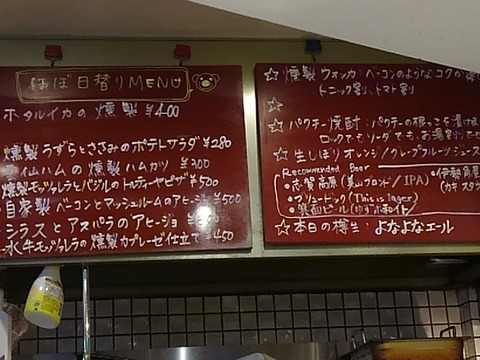 ほぼ日替りMENU
ホタルイカの燻製 ¥400
燻製うずらとささみのポテトサラダ ¥280
燻製ハムカツ ¥300
燻製モッツァレラとバジルのトルティーヤピザ ¥500
自家製ベーコンとマッシュルームのアヒージョ ¥500
シラスとアスパラのアヒージョ
水牛モッツァレラの燻製カプレーゼ仕立て ¥450
☆燻製ウォッカ:ベーコンのようなコクが
トニック割、トマト割
☆
☆パクチー焼酎:パクチーの根っこを漬け
ロックでもソーダでもお湯割りで
☆生しぼりオレンジ/グレープフルーツジュース
Recommended Beer
・志賀高原 (/IPA)
・伊勢角屋
・ブリュードッグ (This is lager)
・箕面ビール (ゆずホ和イト)
☆本日の樽生:よなよなエール